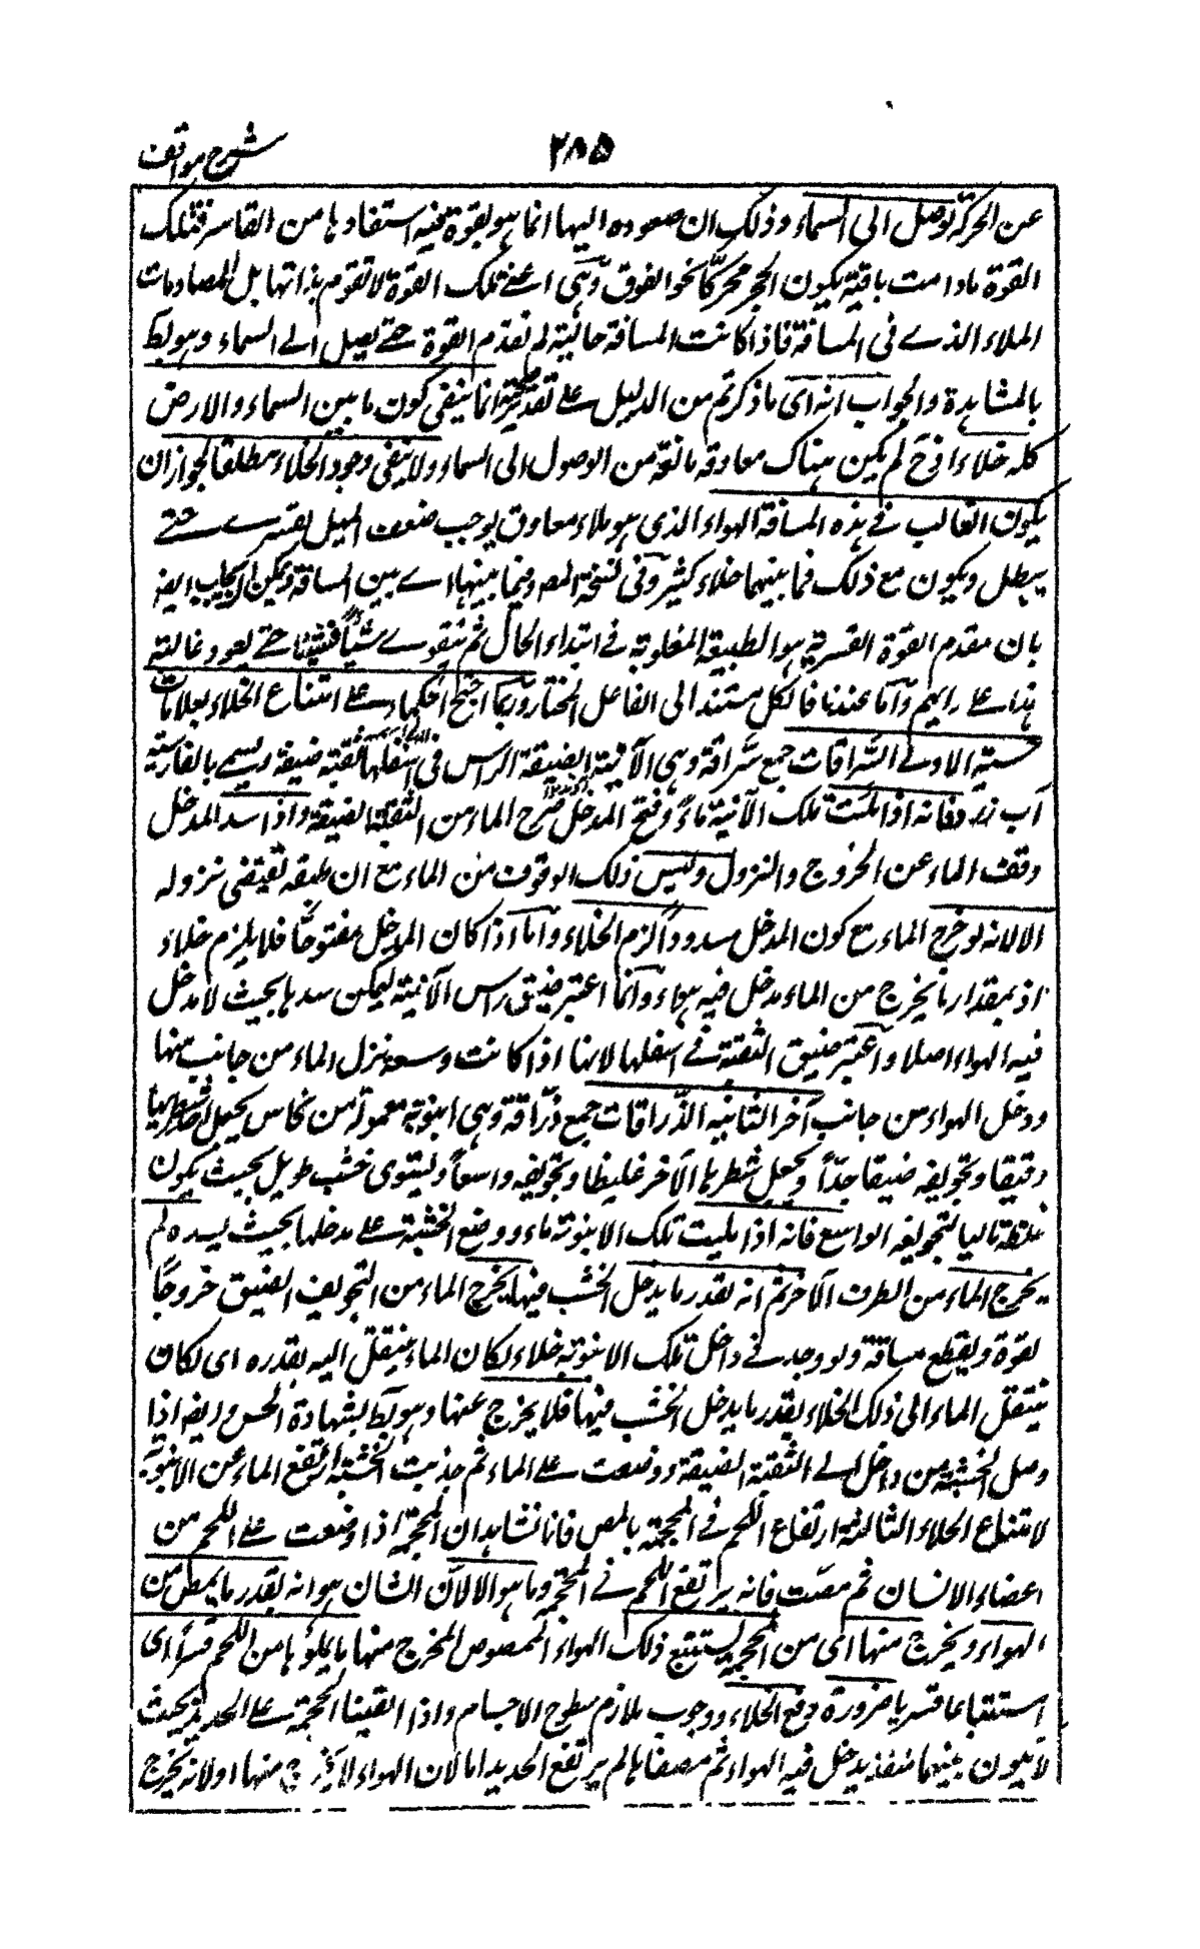 شرح مواقف ٢٨٥
عن الحركة لوصل الى السماء وذلك ان صعوده اليها انما هو بقوة فيه استفادها من القاسر فتلك
القوة مادامت باقية يكون الحجر متحركا نحو الفوق وهى اعنے تلك القوة لا تقوم بذاتها بل لمصادمات
الملاء الذے فى المسافة فاذا كانت المسافة خالية لم تعدم القوة حتے يصل الے السماء وهو بط
بالمشاهدة والجواب انه اى ما ذكرتم من الدليل علے تقدير صحته انما ينفى كون ما بين السماء والارض
كله خلاء اذ ح لم يكن هناك معاوقة مانعة من الوصول الى السماء ولا ينفى وجود الخلاء مطلقا لجواز ان
يكون الغالب فے هذه المسافة الهواء الذى هو ملاء معاوق يوجب ضعف الميل القسرے حتے
يبطل ويكون مع ذلك فما بينهما خلاء كثير وفى نسخة المصـ وفيما بينها اے بين المسافة ويمكن ان يجاب ايضـ
بان مقدم القوة القسرية هو الطبيعة المغلوبة فے ابتداء الحال ثم تتقوے شيئا فشيئا حتے يعود غالبة
هذا علے رايهم واما عندنا فالكل مستند الى الفاعل المختار وربما احتج الحكماء علے امتناع الخلاء بعلامات
حسية الاولے السراقات جمع سراقة وهى الآنية الضيقة الراس فى اسفلها ثقبة ضيقة ويسمے بالفارسية
آب دزد فانه اذا ملئت تلك الآنية ماء وفتح المدخل خرج الماء من الثقبة الضيقة واذا سد المدخل
وقف الماء عن الخروج والنزول وليس ذلك الوقوف من الماء مع ان طبعه تقتضى نزوله
الا لانه لو خرج الماء مع كون المدخل مسدودا لزم الخلاء واما اذا كان المدخل مفتوحا فلا يلزم خلاء
اذ بمقدار ما يخرج من الماء يدخل فيه هواء وانما اعتبر ضيق راس الآنية ليمكن سدها بحيث لا يدخل
فيه الهواء اصلا واعتبر ضيق الثقبة فے اسفلها لانها اذا كانت وسعة نزل الماء من جانب منها
ودخل الهواء من جانب آخر الثانية الذراقات جمع ذراقة وهى انبوبة معمولة من نحاس يجعل احد شطريها
دقيقا وتجويفه ضيقا جدا ويجعل شطرها الآخر غليظا وتجويفه واسعا ويستوى خشب طويل بحيث يكون
غلظه ماليا لتجويفه الواسع فانه اذا مليت تلك الانبوبة ماء ووضع الخشبة علے مدخلها بحيث يسده لم
يخرج الماء من الطرف الآخر ثم انه بقدر ما يدخل الخشب فيها يخرج الماء من التجويف الضيق خروجا
بقوة ويقطع مسافة ولو وجد فے داخل تلك الانبوبة خلاء لكان الماء ينتقل اليه بقدره اى لكان
ينتقل الماء الى ذلك الخلاء بقدر ما يدخل الخشب فيها فلا يخرج عنها وهو بط بشهادة الحس وايضـ اذا
وصل الخشبة من داخل الے الثقبة الضيقة ووضعت علے الماء ثم جذبت الخشبة ارتفع الماء عن الانبوبة
لامتناع الخلاء الثالثة ارتفاع اللحم فے المحجمة بالمص فانا نشاهد ان المحجمة اذا وضعت علے اللحم من
اعضاء الانسان ثم مصت فانه يرتفع اللحم فے المحجمة وما هو الا لان الشان هو انه بقدر ما يمص من
الهواء ويخرج منها اى من المحجمة يستتبع ذلك الهواء الممصوص المخرج منها ما يملؤها من اللحم قسرا اى
استتباعا قسريا ضرورة دفع الخلاء ووجوب تلازم سطوح الاجسام واذا القينا المحجمة علے الحديد بحيث
لا يكون بينهما منفذ يدخل فيه الهواء ثم مصصناها لم يرتفع الحديد اما لان الهواء لا يخرج منها او لانه يخرج